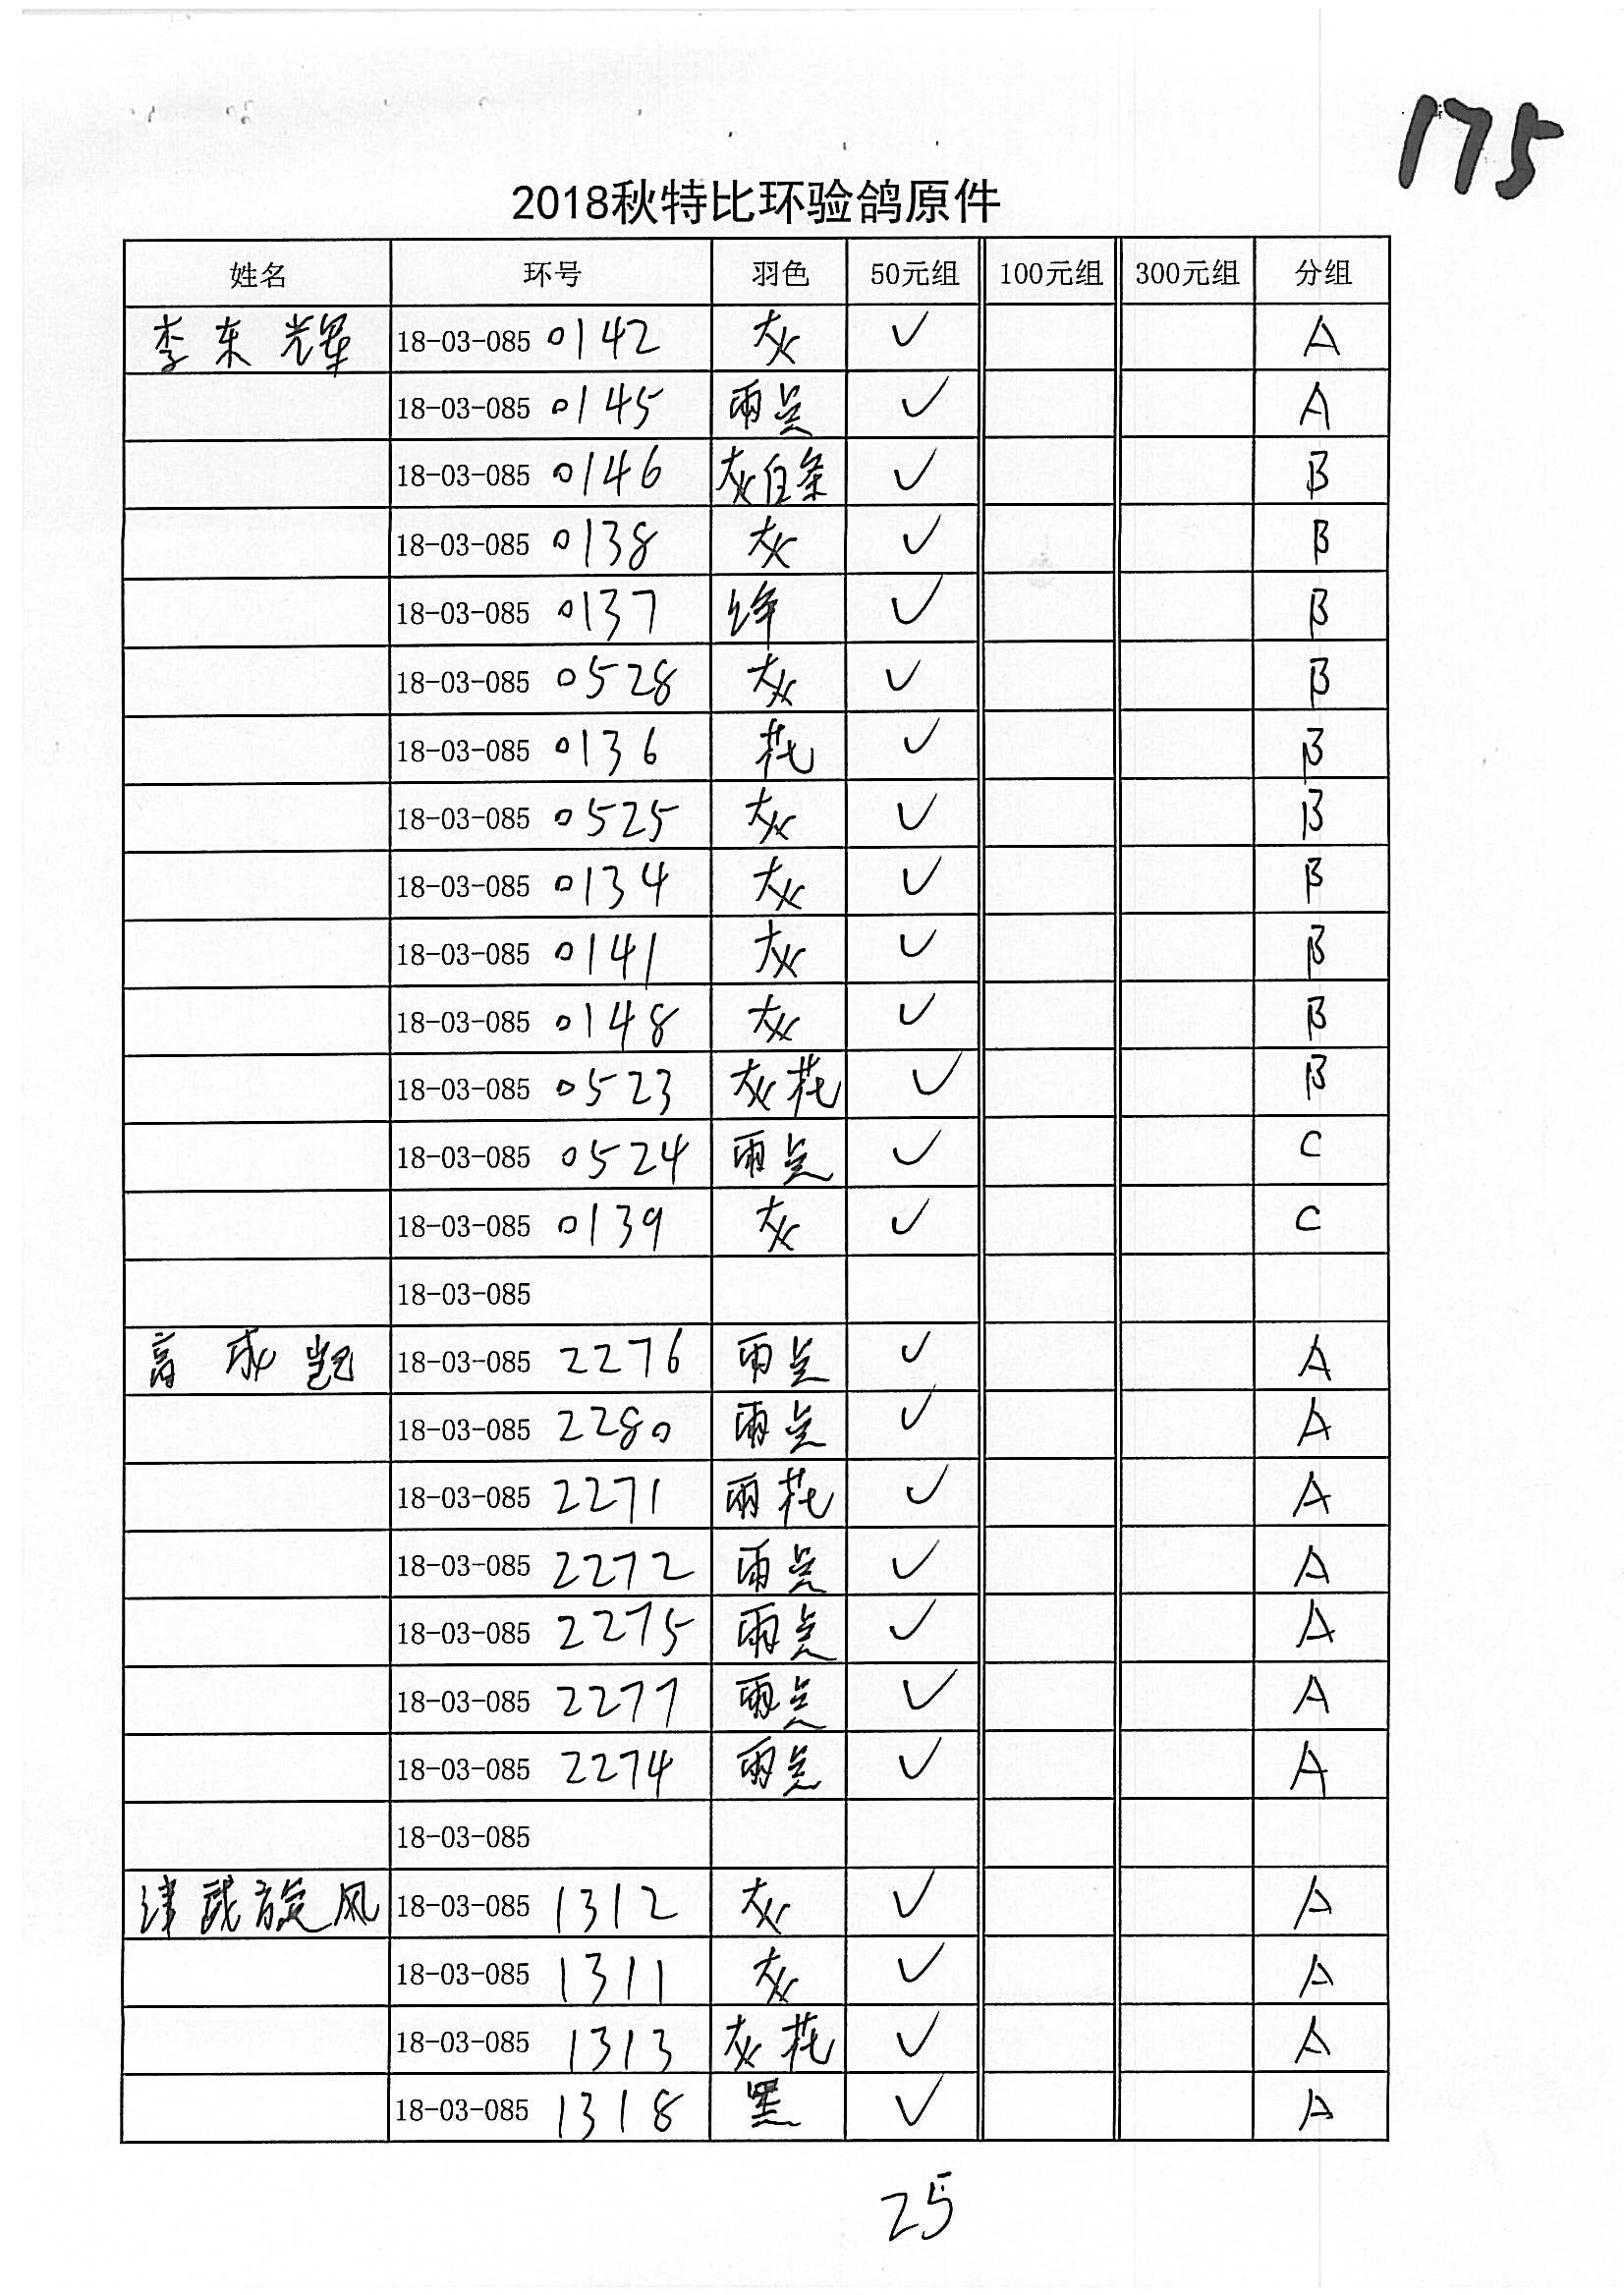 175
2018秋特比环验鸽原件
姓名 环号 羽色 50元组 100元组 300元组 分组
李东辉 18-03-085 0142 灰 ✓ A
18-03-085 0145 雨点 ✓ A
18-03-085 0146 灰白条 ✓ B
18-03-085 0138 灰 ✓ B
18-03-085 0137 绛 ✓ B
18-03-085 0528 灰 ✓ B
18-03-085 0136 花 ✓ B
18-03-085 0525 灰 ✓ B
18-03-085 0134 灰 ✓ B
18-03-085 0141 灰 ✓ B
18-03-085 0148 灰 ✓ B
18-03-085 0523 灰花 ✓ B
18-03-085 0524 雨点 ✓ C
18-03-085 0139 灰 ✓ C
18-03-085
高成凯 18-03-085 2276 雨点 ✓ A
18-03-085 2280 雨点 ✓ A
18-03-085 2271 雨花 ✓ A
18-03-085 2272 雨点 ✓ A
18-03-085 2275 雨点 ✓ A
18-03-085 2277 雨点 ✓ A
18-03-085 2274 雨点 ✓ A
18-03-085
津武旋风 18-03-085 1312 灰 ✓ A
18-03-085 1311 灰 ✓ A
18-03-085 1313 灰花 ✓ A
18-03-085 1318 黑 ✓ A
25